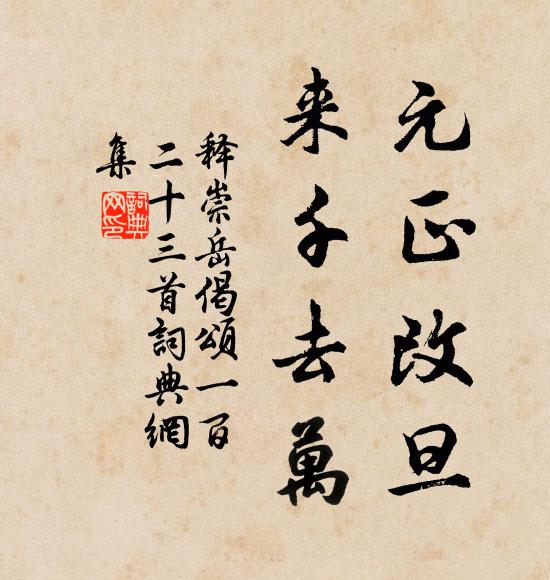 元正改旦
来千去萬
释崇岳偈頌一百
二十三首詞典網
集
詞典
网印